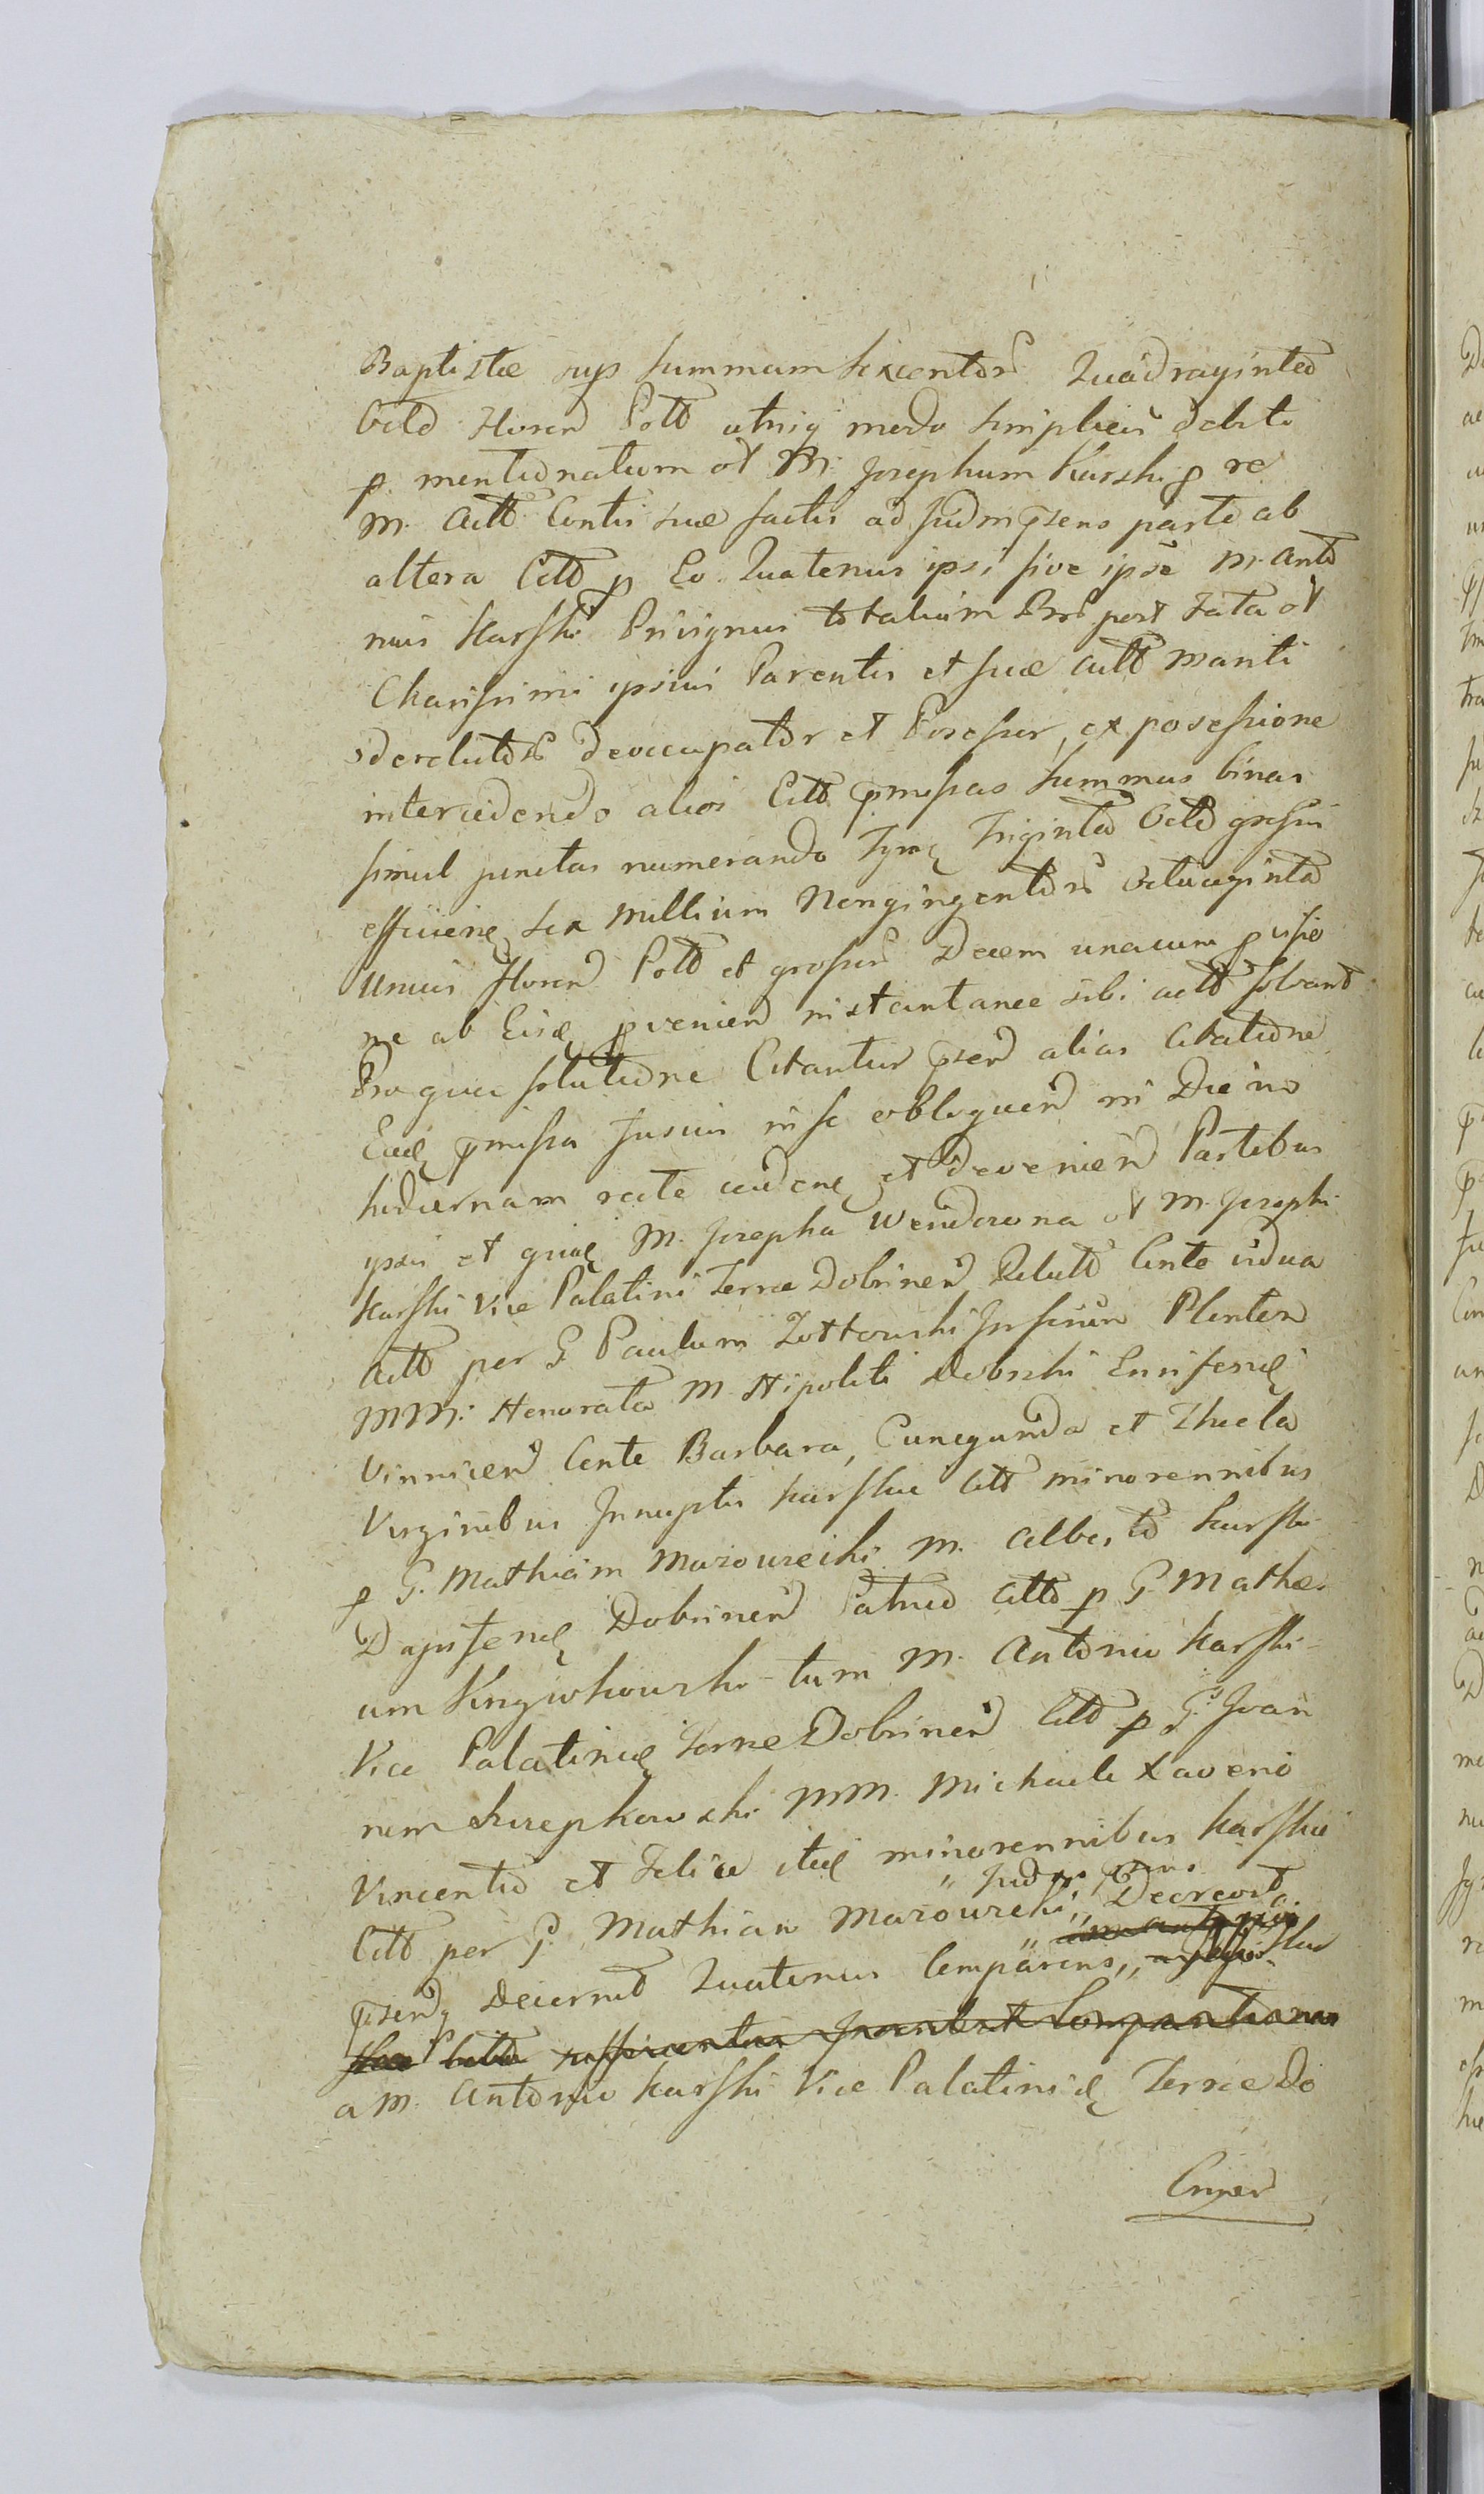 Baptistæ sup summam sexcentor Quadraginta
Octo Floren Poll utriq modo simplicis debiti
p. mentionatum ol M. Josephum Karski p re
M. Actt Contis suæ factis ad Judm psens parte ab
altera Citt p Eo Quatenus ipsi sive ipse M. Anto
nius Karski Privignus totalium Bno post Fata ol
Charissimi ipsius Parentis et suæ Actt Mariti
derelictor deoccupator et Possessor, ex possessione
intercedendo alios Citt pmissas Summas binas
simul junctas numerando Tymf Triginta Octo grossis
efficien sex Millium Nongingentor Octuaginta
Unius Floren Poll et grossor Decem unacum pvisio
ne ab Eisd pvenien instantanee sibi actt solvant
Pro qua solutione Citantur psen alias Citatione
Eadq pmissa fusius in se obloquen in Die in
hodiernam recte caden et devenien Partibus
ipsis et quid M. Josepha Wendorowna ol M. Josephi
Karski Vice Palatini Terræ Dobrinen Relicta Conte vidua
Actt per G. Paulum Zottowski Plenten
MM. Honorata M. Hipoliti Dobrski Ensiferid
Vinnicen Conte Barbara, Cunegunda et Thecla
Virginibus Innuptis Karskie Citt minorennibus
p G. Mathiam Mazowiecki M. Alberto Karski
Dapiferid Dobrinen Patruo Citt p G. Mathæ
um Krzywkowski tum M. Antonio Karski
Vice Palatinid Terræ Dobrinen Citt p G. Joan
nem Szczepkowski MM. Michaele Xaverio
Vincentio et Felice itid minorennibus Karskie
Judm psens
Citt per G. Mathiam Mazowiecki, Decreto
psenq Decernit Quatenus Comparens,
sufficientia Comparitionis
a M. Antonio Karski Vice Palatinid Terræ Do